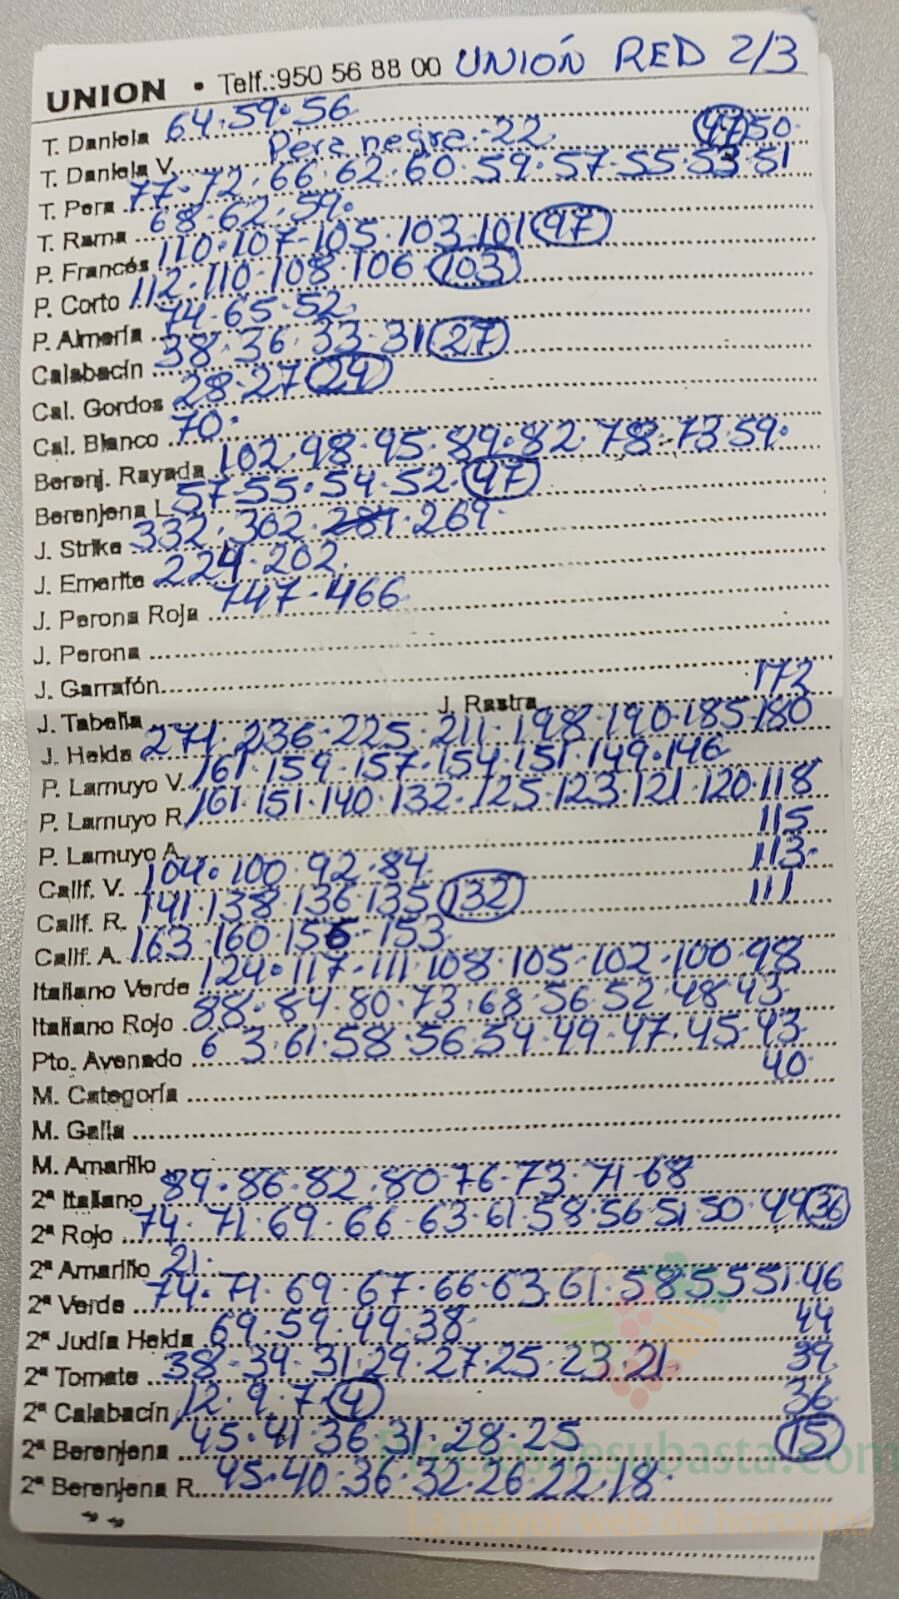 UNION • Telf.:950 56 88 00 UNIÓN RED 2/3
T. Daniela 64.59.56
T. Daniela V. Pera negra-22 47 50
T. Pera 77-72.66.62.60.59.57-55.53.51
T. Rama 68-62.59.
P. Francés 110.107-105.103.101 97
P. Corto 112.110-108.106 103
P. Almería 74-65-52
Calabacín 38.36.33.31 27
Cal. Gordos 28-27 24
Cal. Blanco 70.
Berenj. Rayada 102.98.95.89.82.78.73.59.
Berenjena L. 57-55.54.52. 47
J. Strike 332.302.281.269
J. Emerite 224.202.
J. Perona Roja 747.466
J. Perona
J. Garrafón 172
J. Tabella J. Rastra
J. Helda 271.236-225.211-198.190.185-180
P. Lamuyo V. 161.159.157.154.151.149.146
P. Lamuyo R. 161.151.140.132.125.123.121.120.118
P. Lamuyo A. 115
113.
Calif. V. 104.100.92.84
Calif. R. 141.138.136.135 132 111
Calif. A. 163.160.156-153
Italiano Verde 124.117-111.108.105-102.100.98
Italiano Rojo 88.84.80.73.68.56.52.48.43
Pto. Avenado 63.61.58.56.54.49.47.45.43
40
M. Categoría
M. Galia
M. Amarillo
2ª Italiano 89.86.82.80.76.73.71.68
2ª Rojo 74.71.69.66.63.61.58.56.51.50.49 36
2ª Amarillo 21.
2ª Verde 74.71.69.67.66.63.61.58 55 51.46
44
2ª Judía Helda 69.59.49.38
2ª Tomate 38-34.31.29.27.25.23.21 39
2ª Calabacín 12.9.7. 4 36
2ª Berenjena 45.41.36.31.28.25 15
2ª Berenjena R. 45.40.36.32.26.22.18
Preciosdesubasta.com
La mayor web de hortalizas